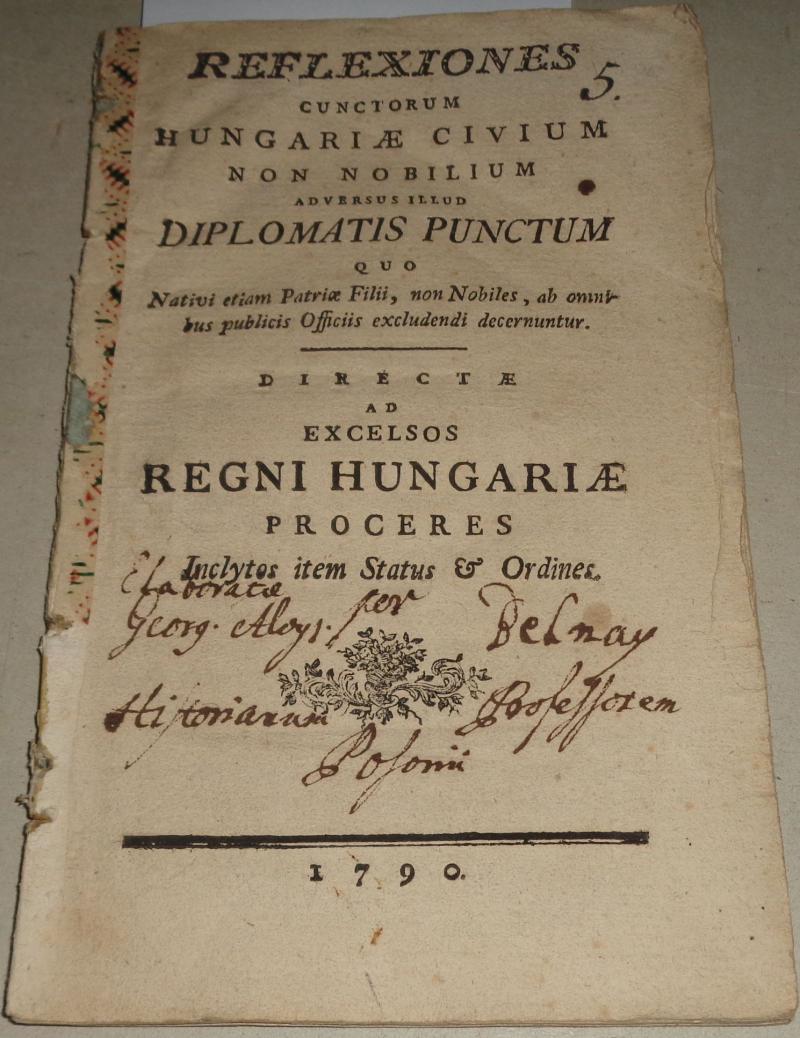 REFLEXIONES
5.
CUNCTORUM
HUNGARIÆ CIVIUM
NON NOBILIUM
ADVERSUS ILLUD
DIPLOMATIS PUNCTUM
QUO
Nativi etiam Patriæ Filii, non Nobiles, ab omni-
bus publicis Officiis excludendi decernuntur.
DIRECTÆ
AD
EXCELSOS
REGNI HUNGARIÆ
PROCERES
Inclytos item Status & Ordines.
Elaboratæ per
Georg. Aloys. Belnay
Historiarum Professorem
Posonii
1790.